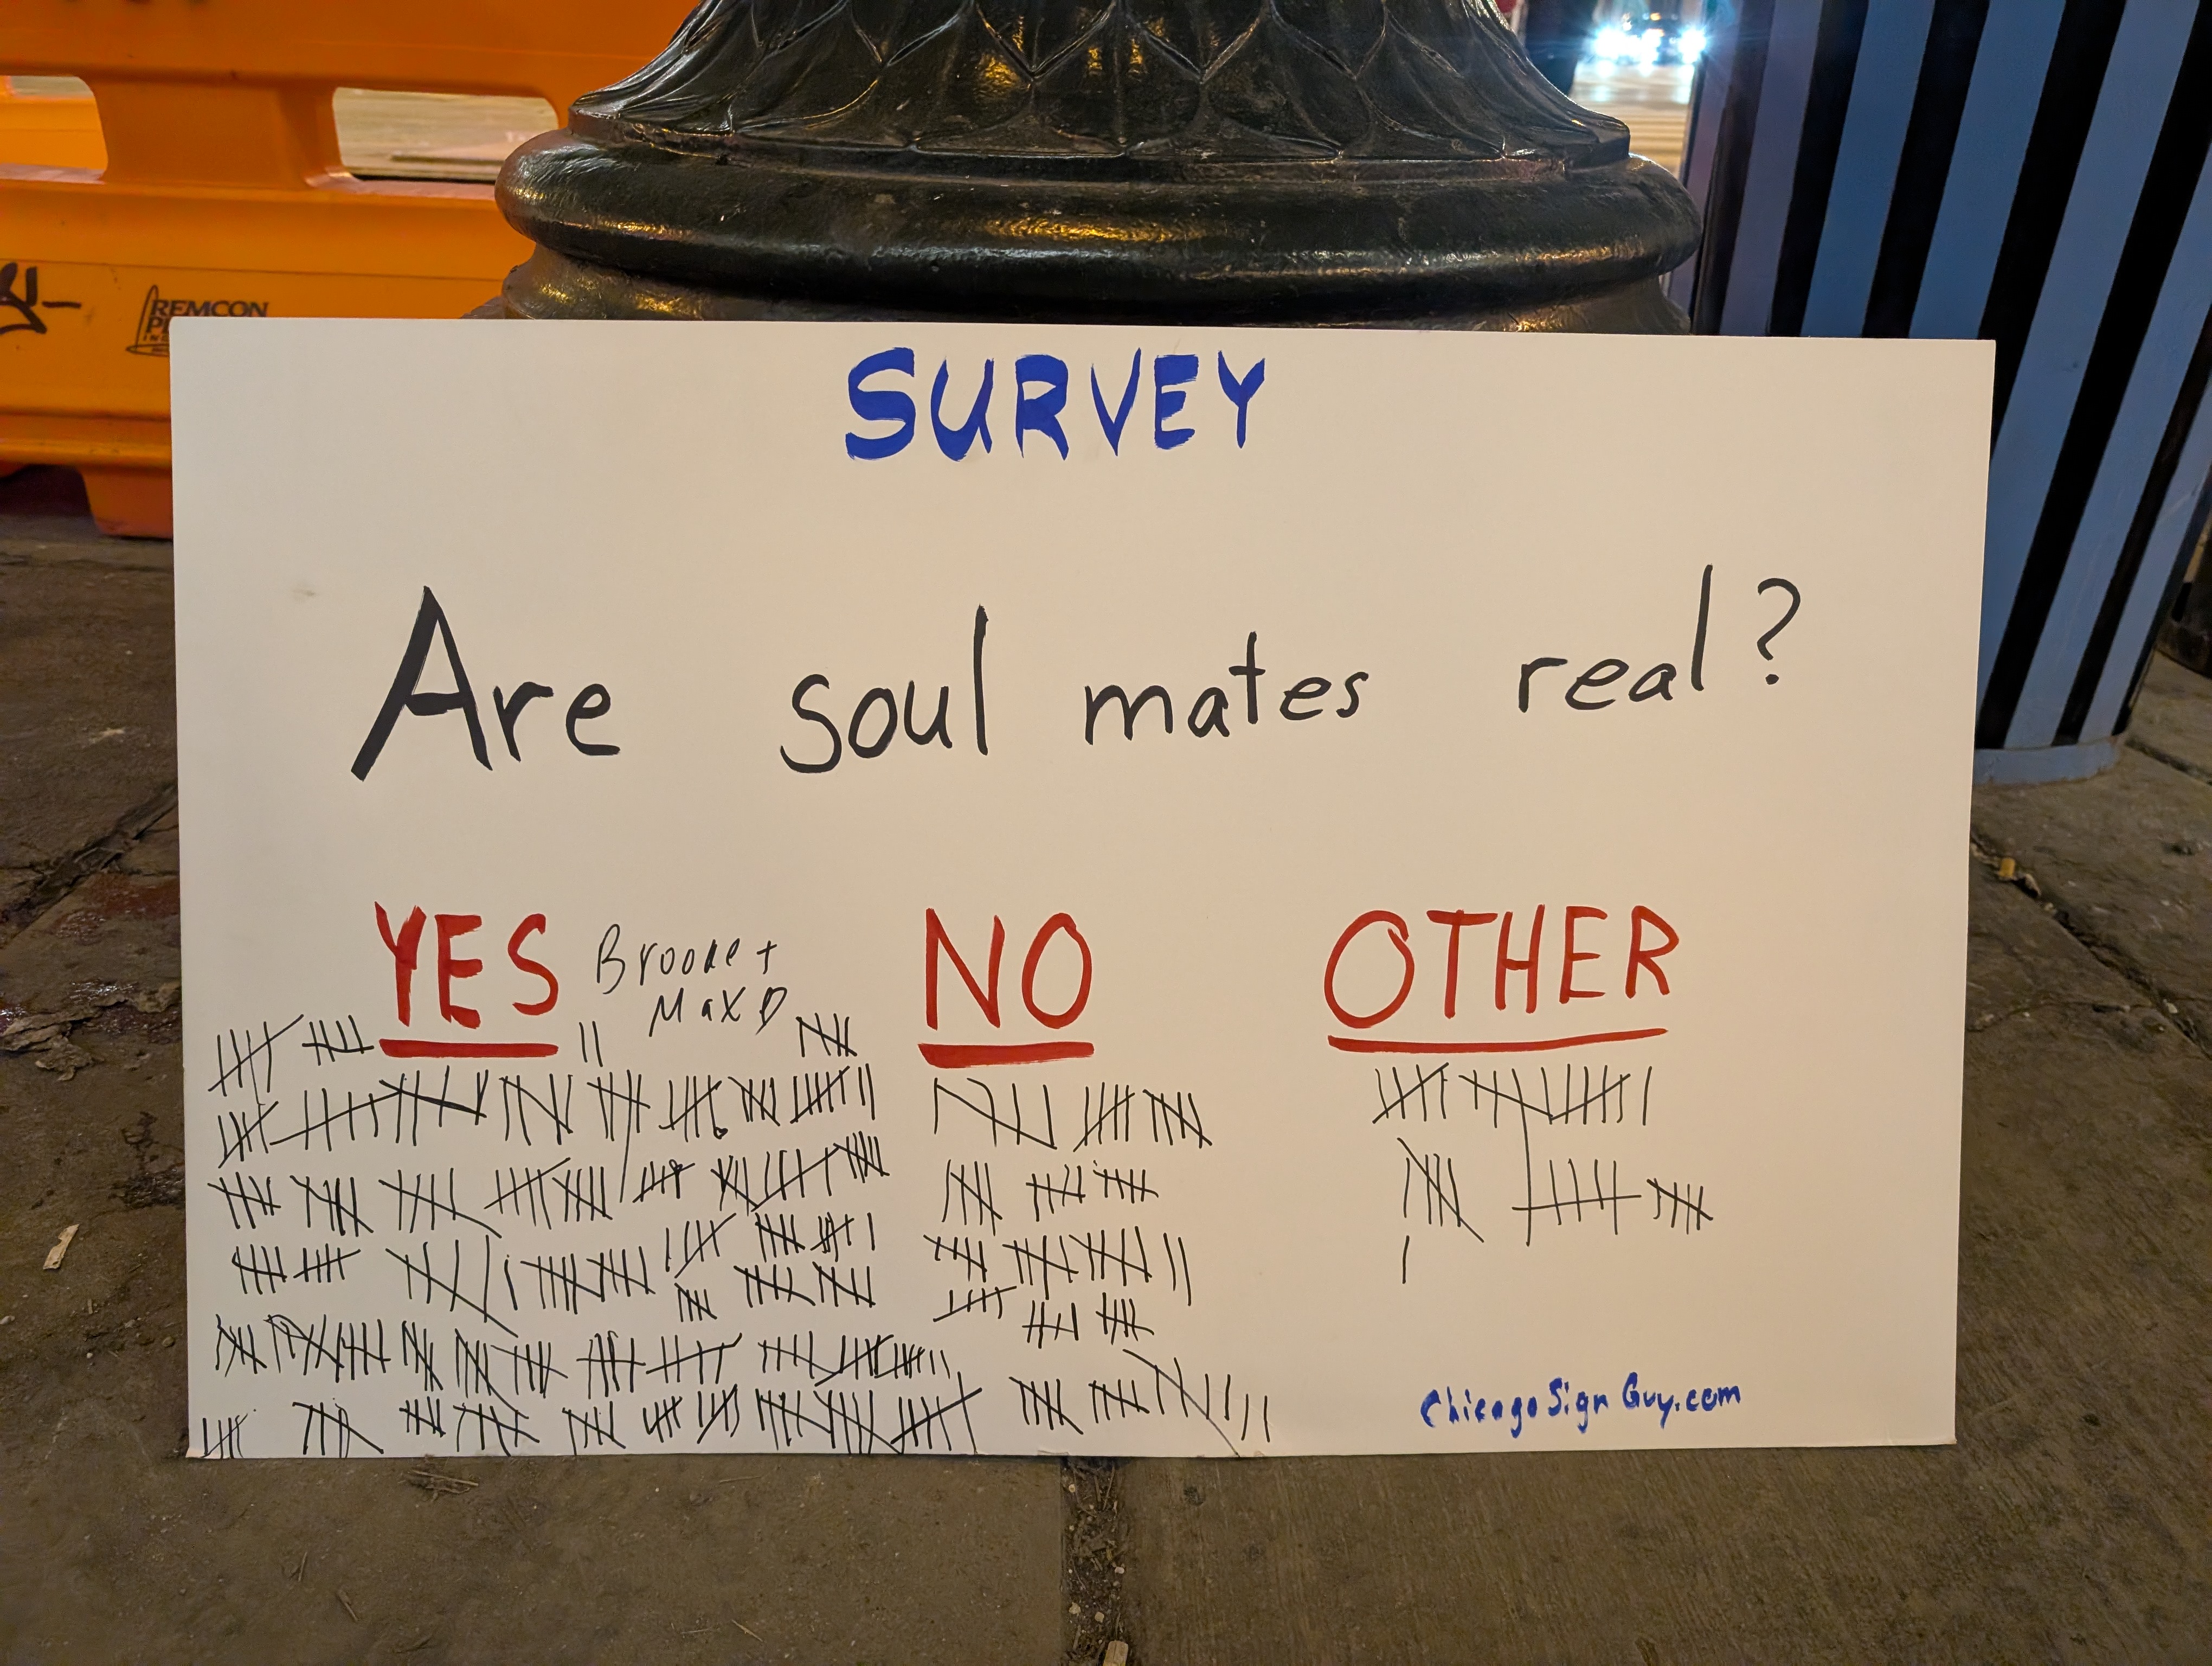 REMCON
SURVEY
Are soul mates real?
YES NO OTHER
Brooke +
Max D
ChicagoSignGuy.com